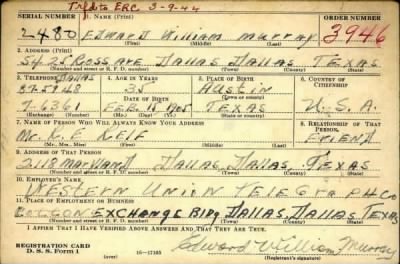 Trfd to ERC 3-9-44
SERIAL NUMBER 1. NAME (Print) ORDER NUMBER
2480 EDWARD William Murray 3946
(First) (Middle) (Last)
2. ADDRESS (Print)
5425 Ross Ave Dallas, Dallas, TEXAS
(Number and street or R. F. D. number) (Town) (County) (State)
3. TELEPHONE 4. AGE IN YEARS 5. PLACE OF BIRTH 6. COUNTRY OF CITIZENSHIP
Dallas
35 Austin
DATE OF BIRTH (Town or county)
7-6361 Feb. 1905 TEXAS U.S.A.
(Mo.) (Day) (Yr.) (State or country)
7. NAME OF PERSON WHO WILL ALWAYS KNOW YOUR ADDRESS 8. RELATIONSHIP OF THAT PERSON
Mr. E REIF FRIEND
(Mr., Mrs., Miss) (First) (Middle) (Last)
9. ADDRESS OF THAT PERSON
2118 Dallas, Dallas, TEXAS
(Number and street or R. F. D. number) (Town) (County) (State)
10. EMPLOYER'S NAME
WESTERN UNION TELEGraPH Co
11. PLACE OF EMPLOYMENT OR BUSINESS
COTTON EXCHANGE Bldg. DALLAS, DALLAS, TEXAS
(Number and street or R. F. D. number) (Town) (County) (State)
I AFFIRM THAT I HAVE VERIFIED ABOVE ANSWERS AND THAT THEY ARE TRUE.
REGISTRATION CARD
D. S. S. Form 1 16-17105 Edward William Murray
(over) (Registrant's signature)